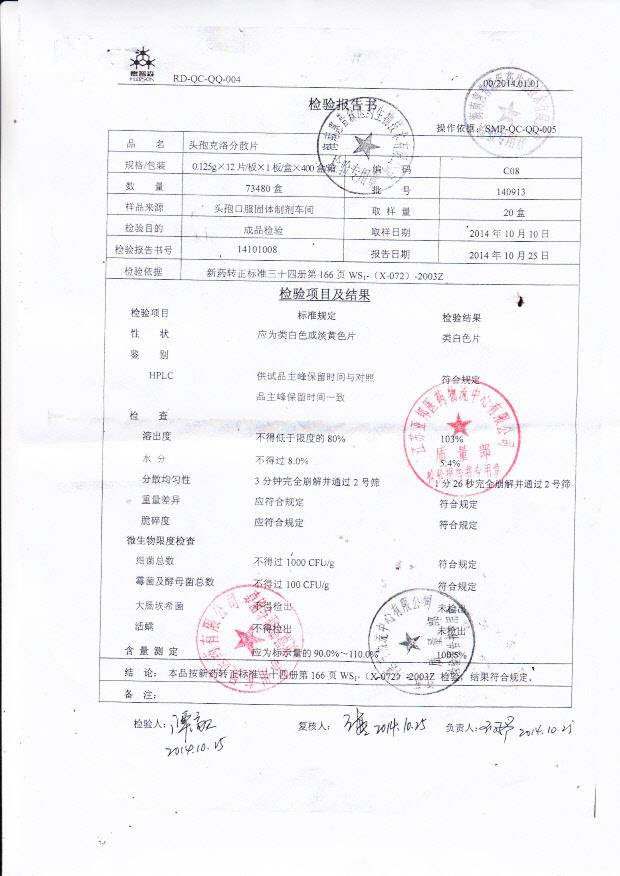 惠普森
RD-QC-QQ-004
00/2014.01.01
检验报告书
操作依据：SMP-QC-QQ-005
品 名 头孢克洛分散片
规格/包装 0.125g×12 片/板×1 板/盒×400 盒/箱 编 码 C08
数 量 73480 盒 批 号 140913
样品来源 头孢口服固体制剂车间 取 样 量 20 盒
检验目的 成品检验 取样日期 2014 年 10 月 10 日
检验报告书号 14101008 报告日期 2014 年 10 月 25 日
检验依据 新药转正标准三十四册第 166 页 WS₁-（X-072）-2003Z
检验项目及结果
检验项目 标准规定 检验结果
性 状 应为类白色或淡黄色片 类白色片
鉴 别
HPLC 供试品主峰保留时间与对照 符合规定
品主峰保留时间一致
检 查
溶出度 不得低于限度的 80% 103%
水 分 不得过 8.0% 5.4%
分散均匀性 3 分钟完全崩解并通过 2 号筛 1 分 26 秒完全崩解并通过 2 号筛
重量差异 应符合规定 符合规定
脆碎度 应符合规定 符合规定
微生物限度检查
细菌总数 不得过 1000 CFU/g 符合规定
霉菌及酵母菌总数 不得过 100 CFU/g 符合规定
大肠埃希菌 不得检出 未检出
活螨 不得检出 未检出
含 量 测 定 应为标示量的 90.0%～110.0% 100.5%
结 论： 本品按新药转正标准三十四册第 166 页 WS₁-（X-072）-2003Z 检验，结果符合规定。
备 注：
检验人： 复核人： 2014.10.25 负责人： 2014.10.25
2014.10.25
江苏亚邦医药物流中心有限公司
质量部
检验报告书专用章
检验专用章